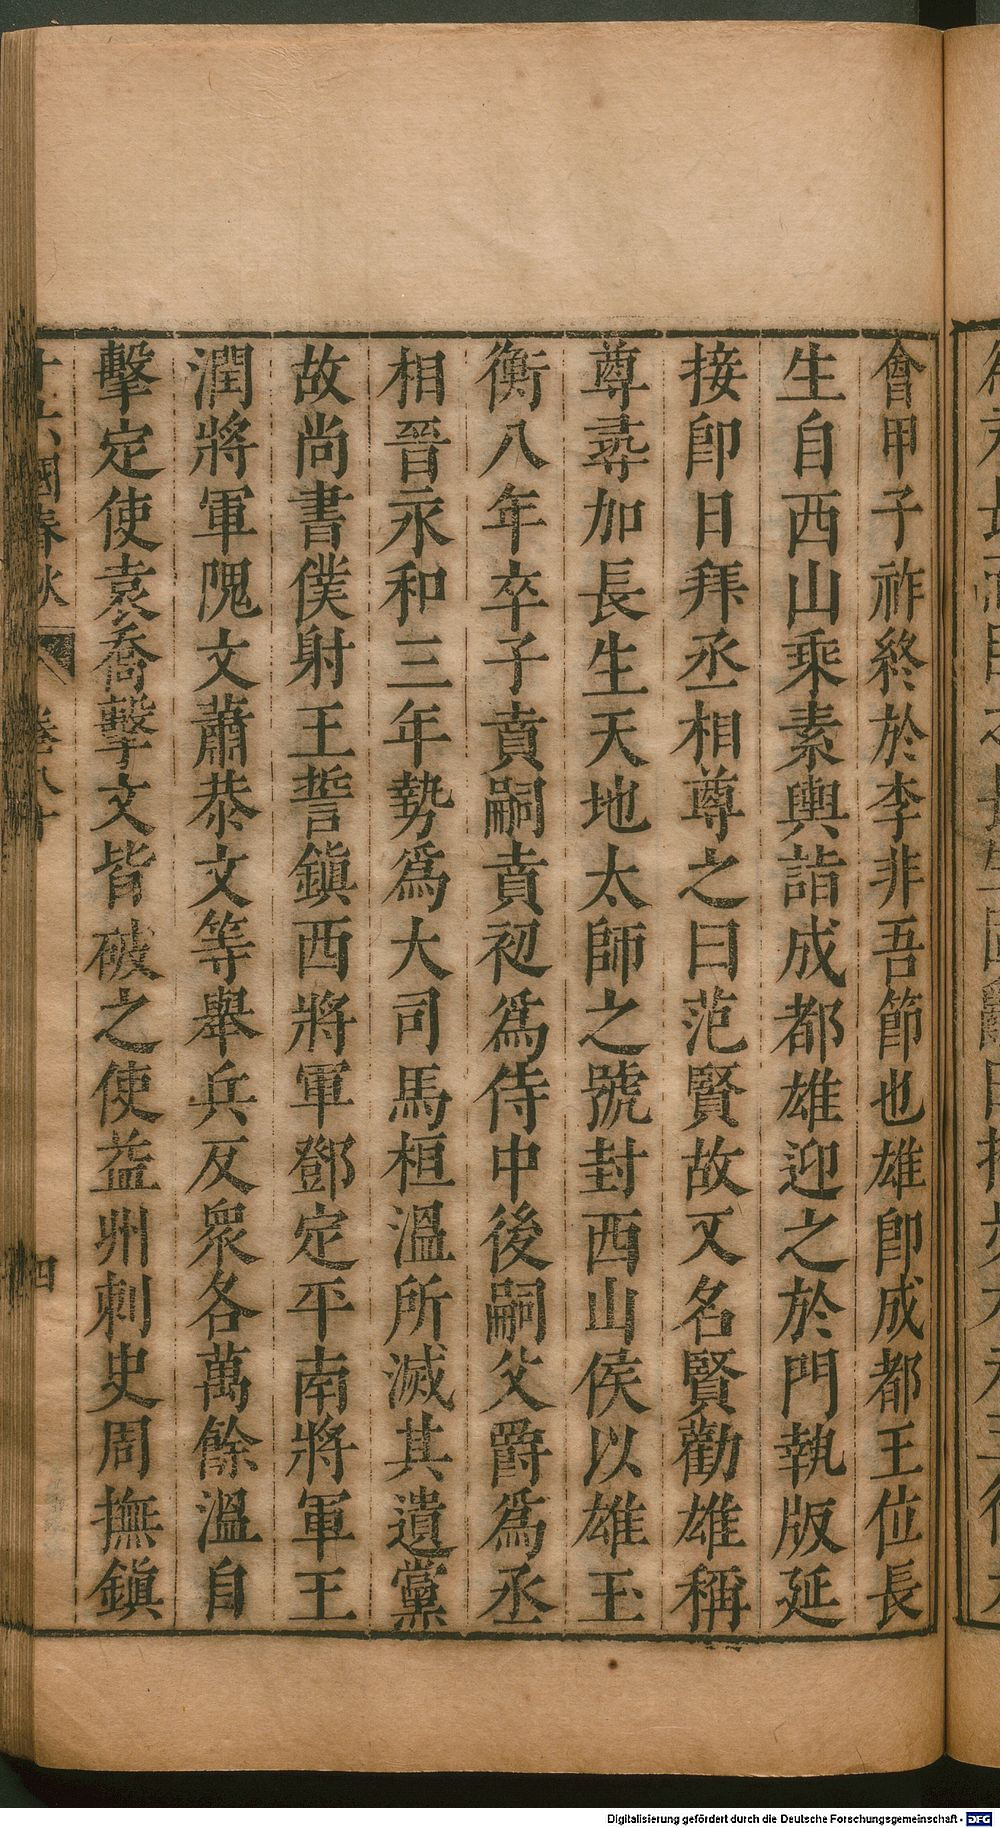 會甲子祚終於李非吾節也雄卽成都王位長
生自西山乘素輿詣成都雄迎之於門執版延
接卽日拜丞相尊之曰范賢故又名賢勸雄稱
尊尋加長生天地太師之號封西山侯以雄玉
衡八年卒子賁嗣賁初爲侍中後嗣父爵爲丞
相晉永和三年勢爲大司馬桓溫所滅其遺黨
故尚書僕射王誓鎭西將軍鄧定平南將軍王
潤將軍隗文蕭恭文等舉兵反衆各萬餘溫自
擊定使袁喬擊文皆破之使益州刺史周撫鎭
十六國春秋 卷八十 四
Digitalisierung gefördert durch die Deutsche Forschungsgemeinschaft - DFG